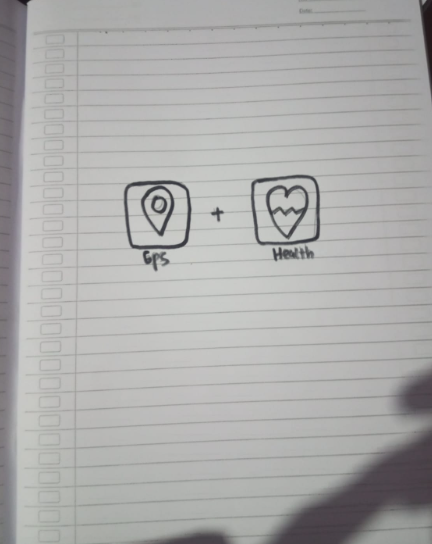 Date
+
Gps
Health